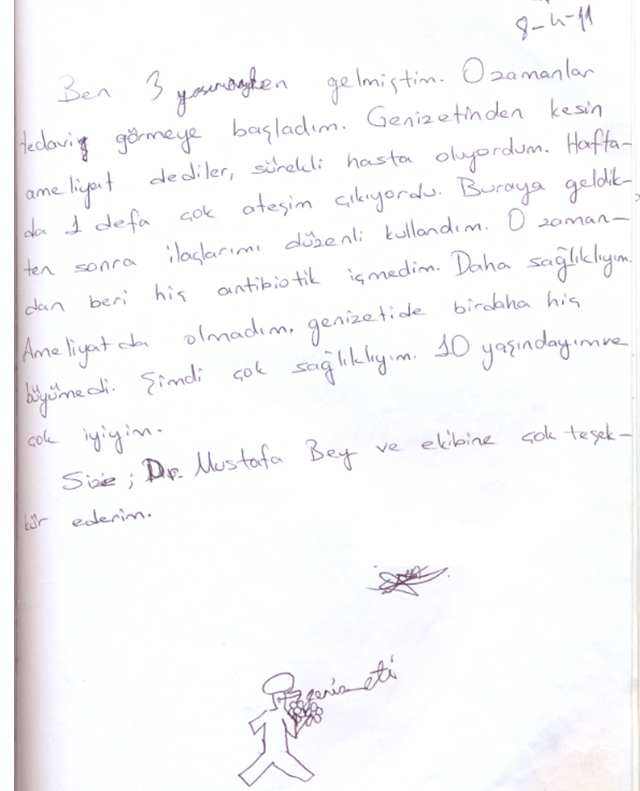 8-4-11
Ben 3 yaşındayken gelmiştim. O zamanlar
tedaviy görmeye başladım. Genizetinden kesin
ameliyat dediler, sürekli hasta oluyordum. Hafta-
da 1 defa çok ateşim çıkıyordu. Buraya geldik-
ten sonra ilaçlarımı düzenli kullandım. O zaman-
dan beri hiç antibiotik içmedim. Daha sağlıklıyım.
Ameliyatda olmadım, genizetide birdaha hiç
büyümedi. Şimdi çok sağlıklıyım. 10 yaşındayımve
çok iyiyim.
Size; Dr. Mustafa Bey ve ekibine çok teşek-
kür ederim.
genizeti